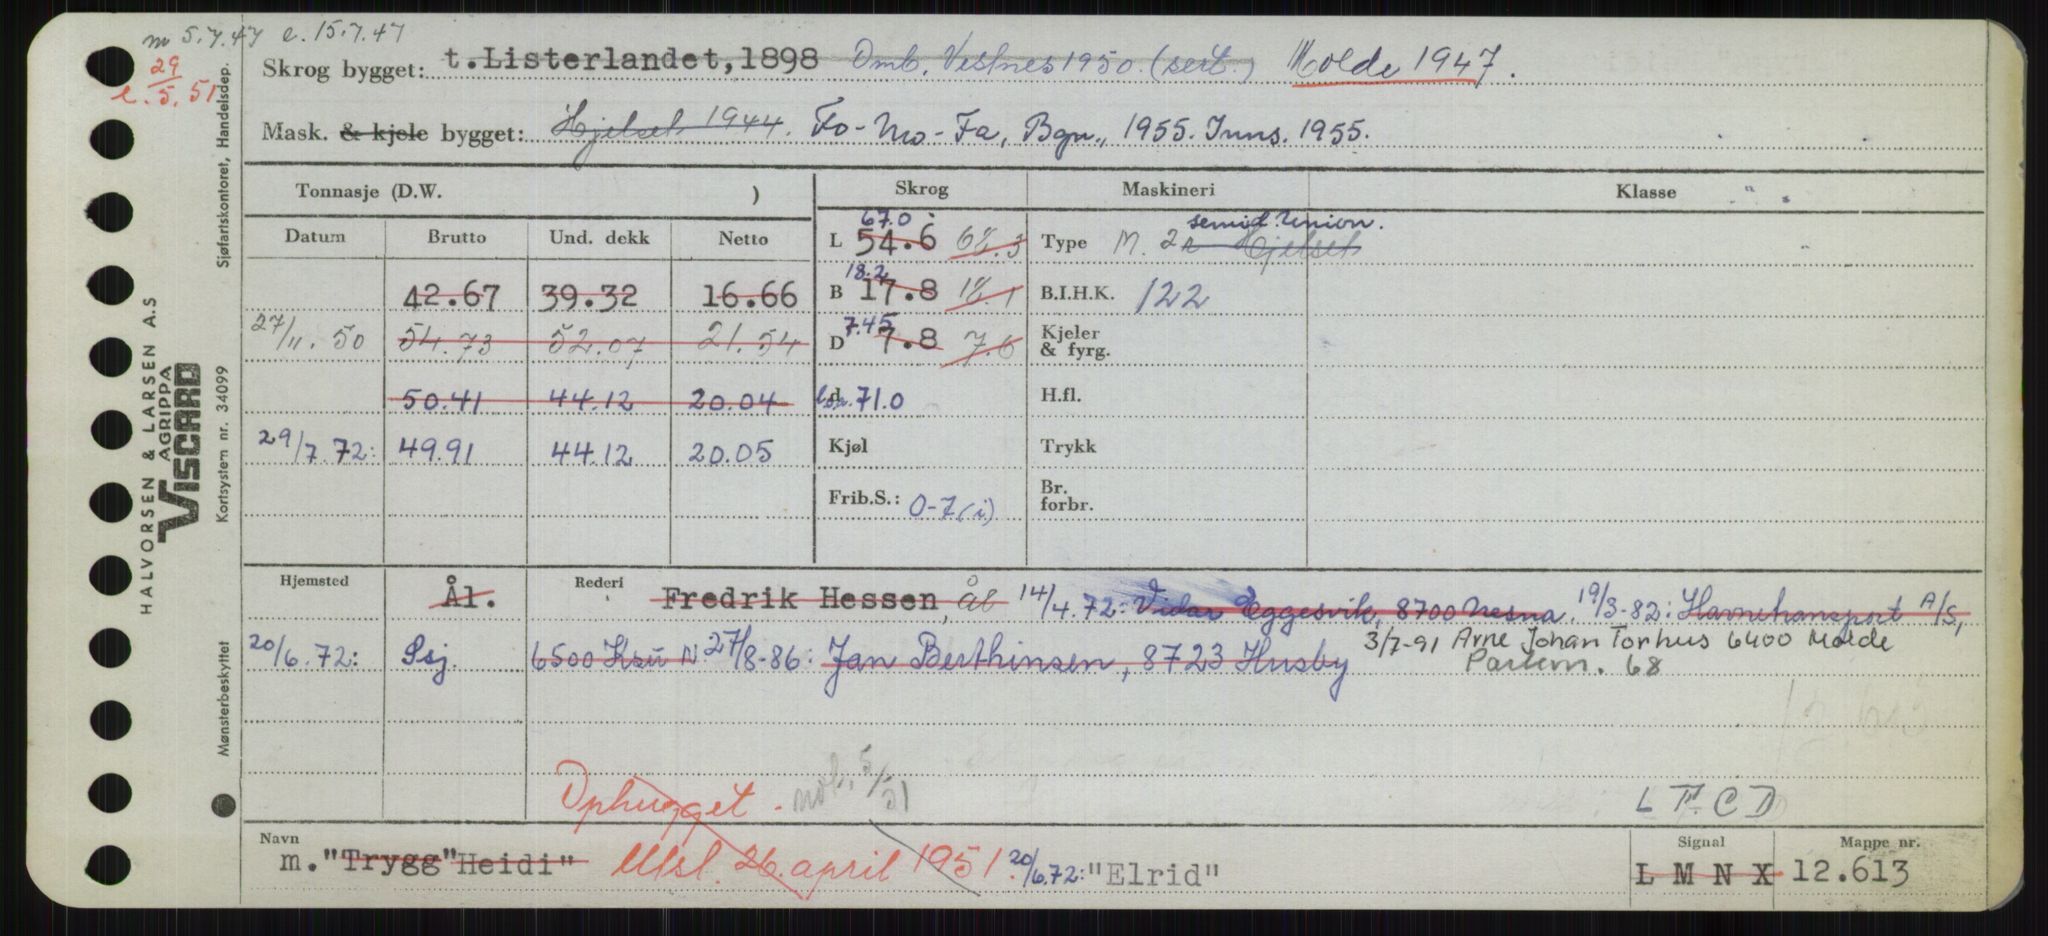 m 5.7.47 e. 15.7.47
29
e. 5. 51
Skrog bygget: t. Listerlandet, 1898 Omb. Vestnes 1950. (sert.) Molde 1947.
Mask. & kjele bygget: Hjelset 1944. Fo-Mo-Fa, Bgn., 1955. Inns. 1955.
Tonnasje (D.W. ) Skrog Maskineri Klasse
Datum Brutto Und. dekk Netto
67.0 semid. Union.
L 54.6 68.3 Type M. 2 Hjelset
18.2
42.67 39.32 16.66 B 17.8 18.1 B.I.H.K. 122
7.45
27/11. 50 54.73 52.07 21.54 D 7.8 7.6 Kjeler & fyrg.
50.41 44.12 20.04 d 71.0 H.fl.
29/7.72: 49.91 44.12 20.05 Kjøl Trykk
Frib.S.: 0-7 (i) Br. forbr.
Hjemsted Ål. Rederi Fredrik Hessen, Ål 14/4.72: Vidar Eggesvik, 8700 Nesna. 19/3-82: Havnetransport A/S,
20/6.72: Ssj. 6500 Krsu N 27/8-86: Jan Berthinsen, 8723 Husby 3/7-91 Arne Johan Torhus 6400 Molde
Partern. 68
Ophugget. not. 5/51
L F C D
Navn Signal Mappe nr.
m. "Trygg" Heidi" Utsl. 26. april 1951. 20/6.72: "Elrid" L M N X 12.613
Sjøfartskontoret, Handelsdep.
HALVORSEN & LARSEN A.S
AGRIPPA
VISCARD
Kortsystem nr. 34099
Mønsterbeskyttet